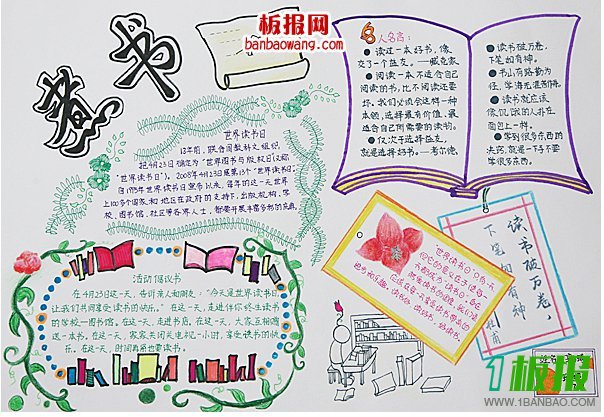 板报网
banbaowang.com
书
名人名言:
● 读过一本好书,像
交了一个益友。——臧克家
● 阅读一本不适合自己
阅读的书,比不阅读还要
坏,我们必须会这样一种
本领,选择最有价值、最
适合自己所需要的读物。
● 仅次于选择益友,
就是选择好书。——考尔德
● 读书破万卷,
下笔如有神。
● 书山有路勤为
径,学海无涯苦作舟。
● 读书就应该
像饥饿的人扑在
面包上一样。
● 学到很多东西的
诀窍,就是一下子不要
学很多东西。
世界读书日
13年前,联合国教科文组织,
把4月23日确定为“世界图书与版权日(又称
“世界读书日”)。2008年4月23日是第13个“世界读书日”。
自1995年世界读书日宣布以来,每年的这一天世界
上100多个国家和地区在政府的支持下,出版机构、学
校、图书馆、社区等各界人士,都要开展丰富多彩的庆典。
活动倡议书
在4月23日这一天,告诉亲人和朋友:“今天是世界读书日,
让我们共同享受读书的快乐。”在这一天,走进伴你终生读书
的学校—图书馆。在这一天,走进书店。在这一天,大家互相赠
送一本书。在这一天,家家关闭电视一小时,享受读书的快
乐。在这一天,时间再紧也要读书。
读书破万卷,
下笔如有神
1板报
WWW.1BANBAO.COM